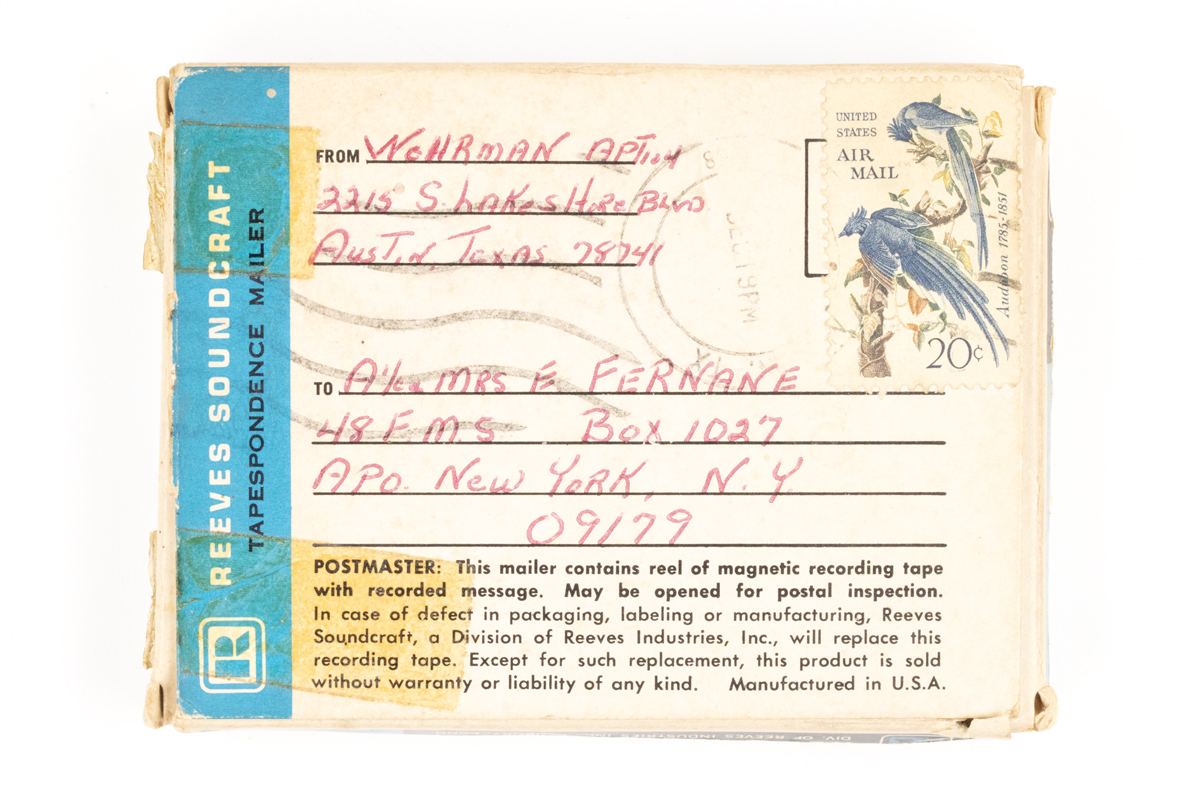 REEVES SOUNDCRAFT
TAPESPONDENCE MAILER
R
FROM WOHRMAN APT 104
2215 S. LAKESHORE BLVD
AUSTIN, TEXAS 78741
UNITED
STATES
AIR
MAIL
Audubon 1785-1851
20¢
PM
TO A1/c & MRS E FERNANE
48 F.M.S BOX 1027
APO. NEW YORK, N.Y.
09179
POSTMASTER: This mailer contains reel of magnetic recording tape
with recorded message. May be opened for postal inspection.
In case of defect in packaging, labeling or manufacturing, Reeves
Soundcraft, a Division of Reeves Industries, Inc., will replace this
recording tape. Except for such replacement, this product is sold
without warranty or liability of any kind. Manufactured in U.S.A.
DIV. OF REEVES INDUSTRIES